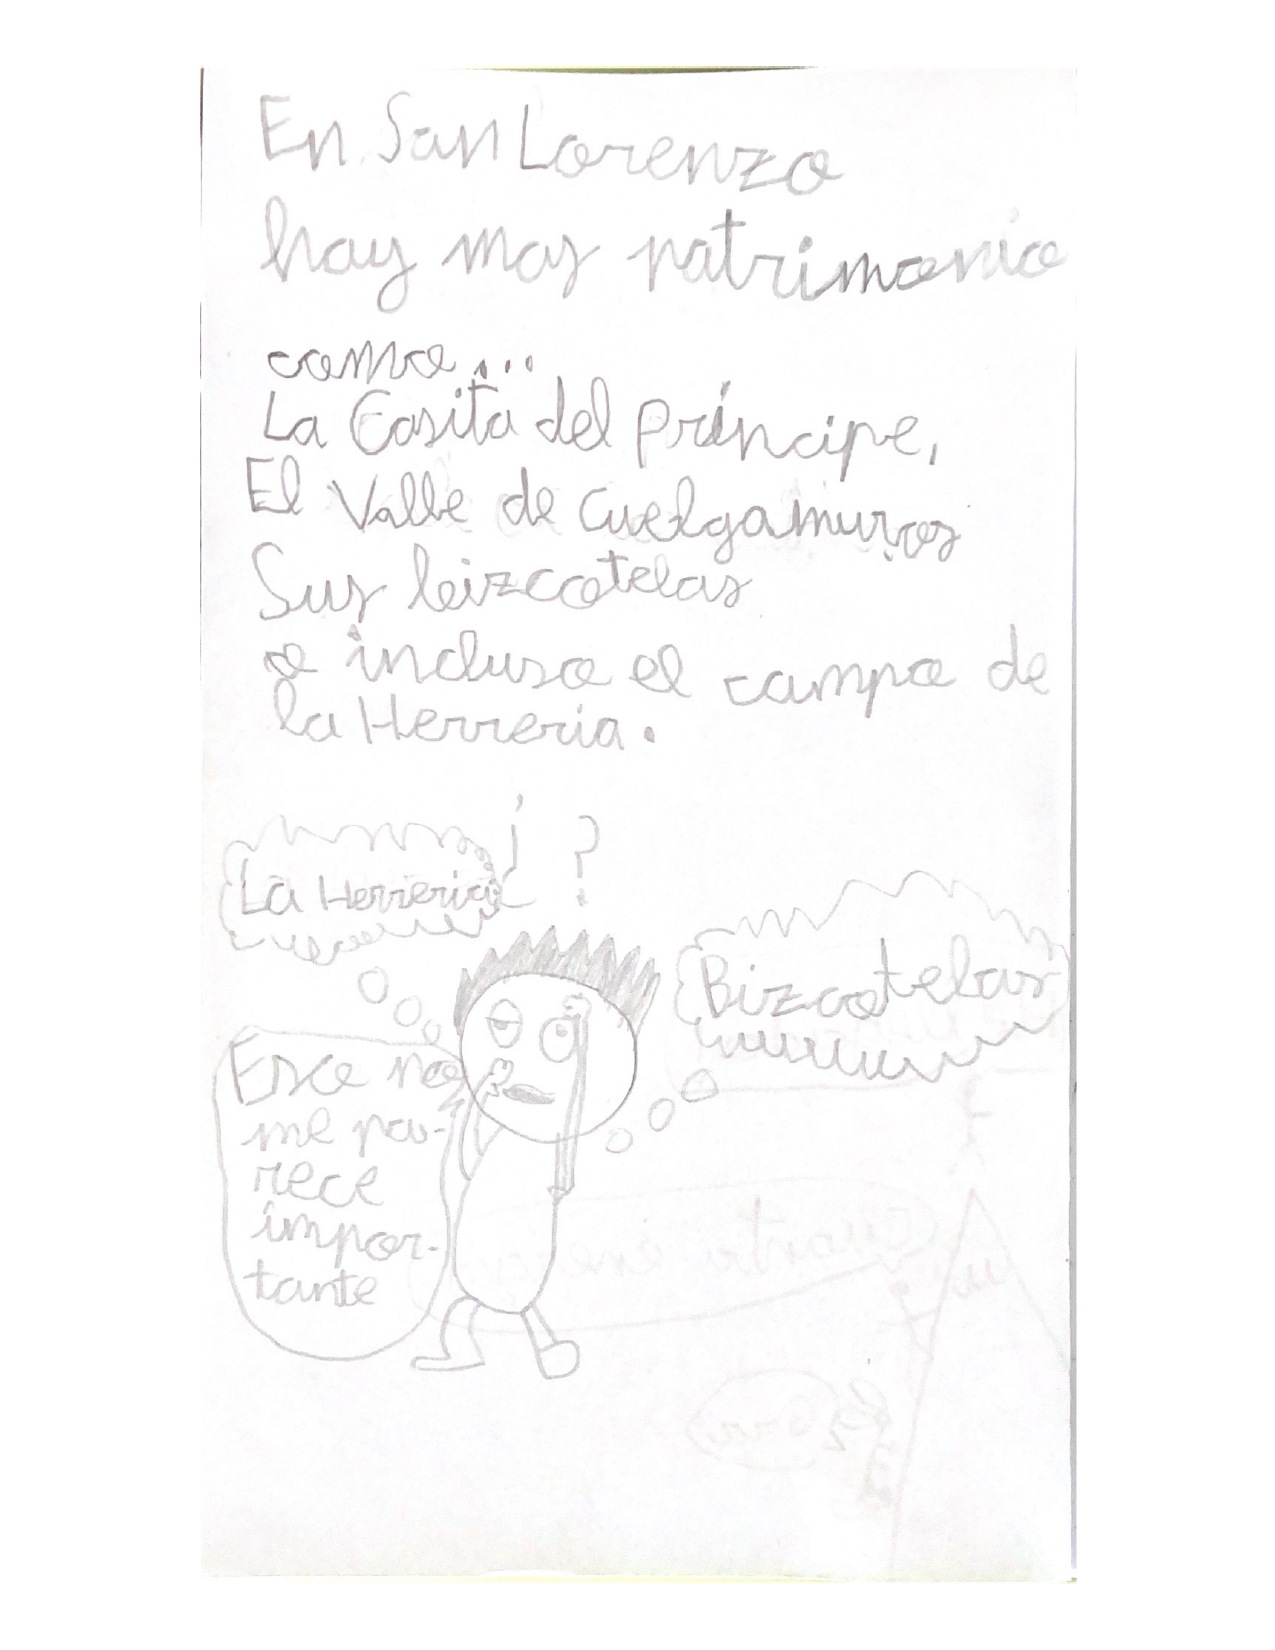 En San Lorenzo
hay mas patrimonio
como...
La Casita del Príncipe,
El Valle de Cuelgamuros
Sus bizcotelas
o incluso el campo de
la Herreria.
¡ ?
La Herreria
Bizcotelas
Eso no
me pa-
rece
impor-
tante